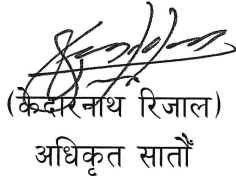 (केदारनाथ रिजाल)
अधिकृत सातौँ